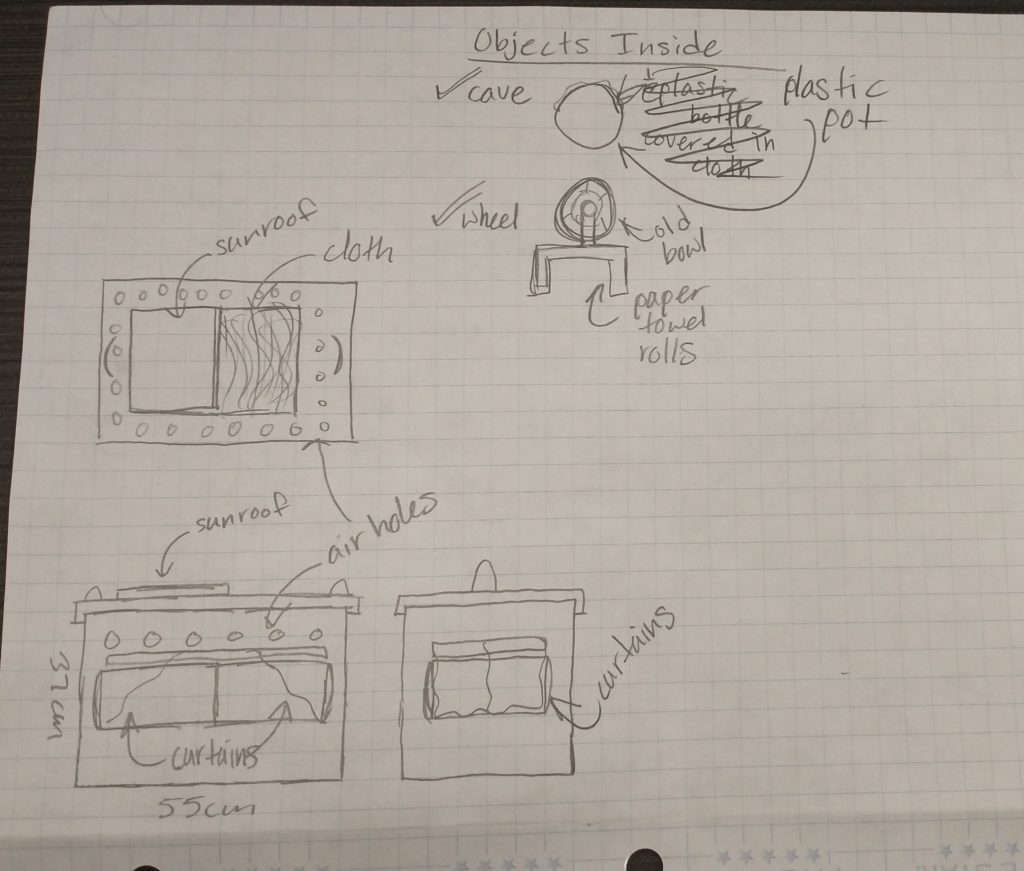 Objects Inside
cave
plastic
bottle
covered in
cloth
plastic
pot
wheel
old
bowl
paper
towel
rolls
sunroof
cloth
sunroof
air holes
curtains
37cm
curtains
55cm